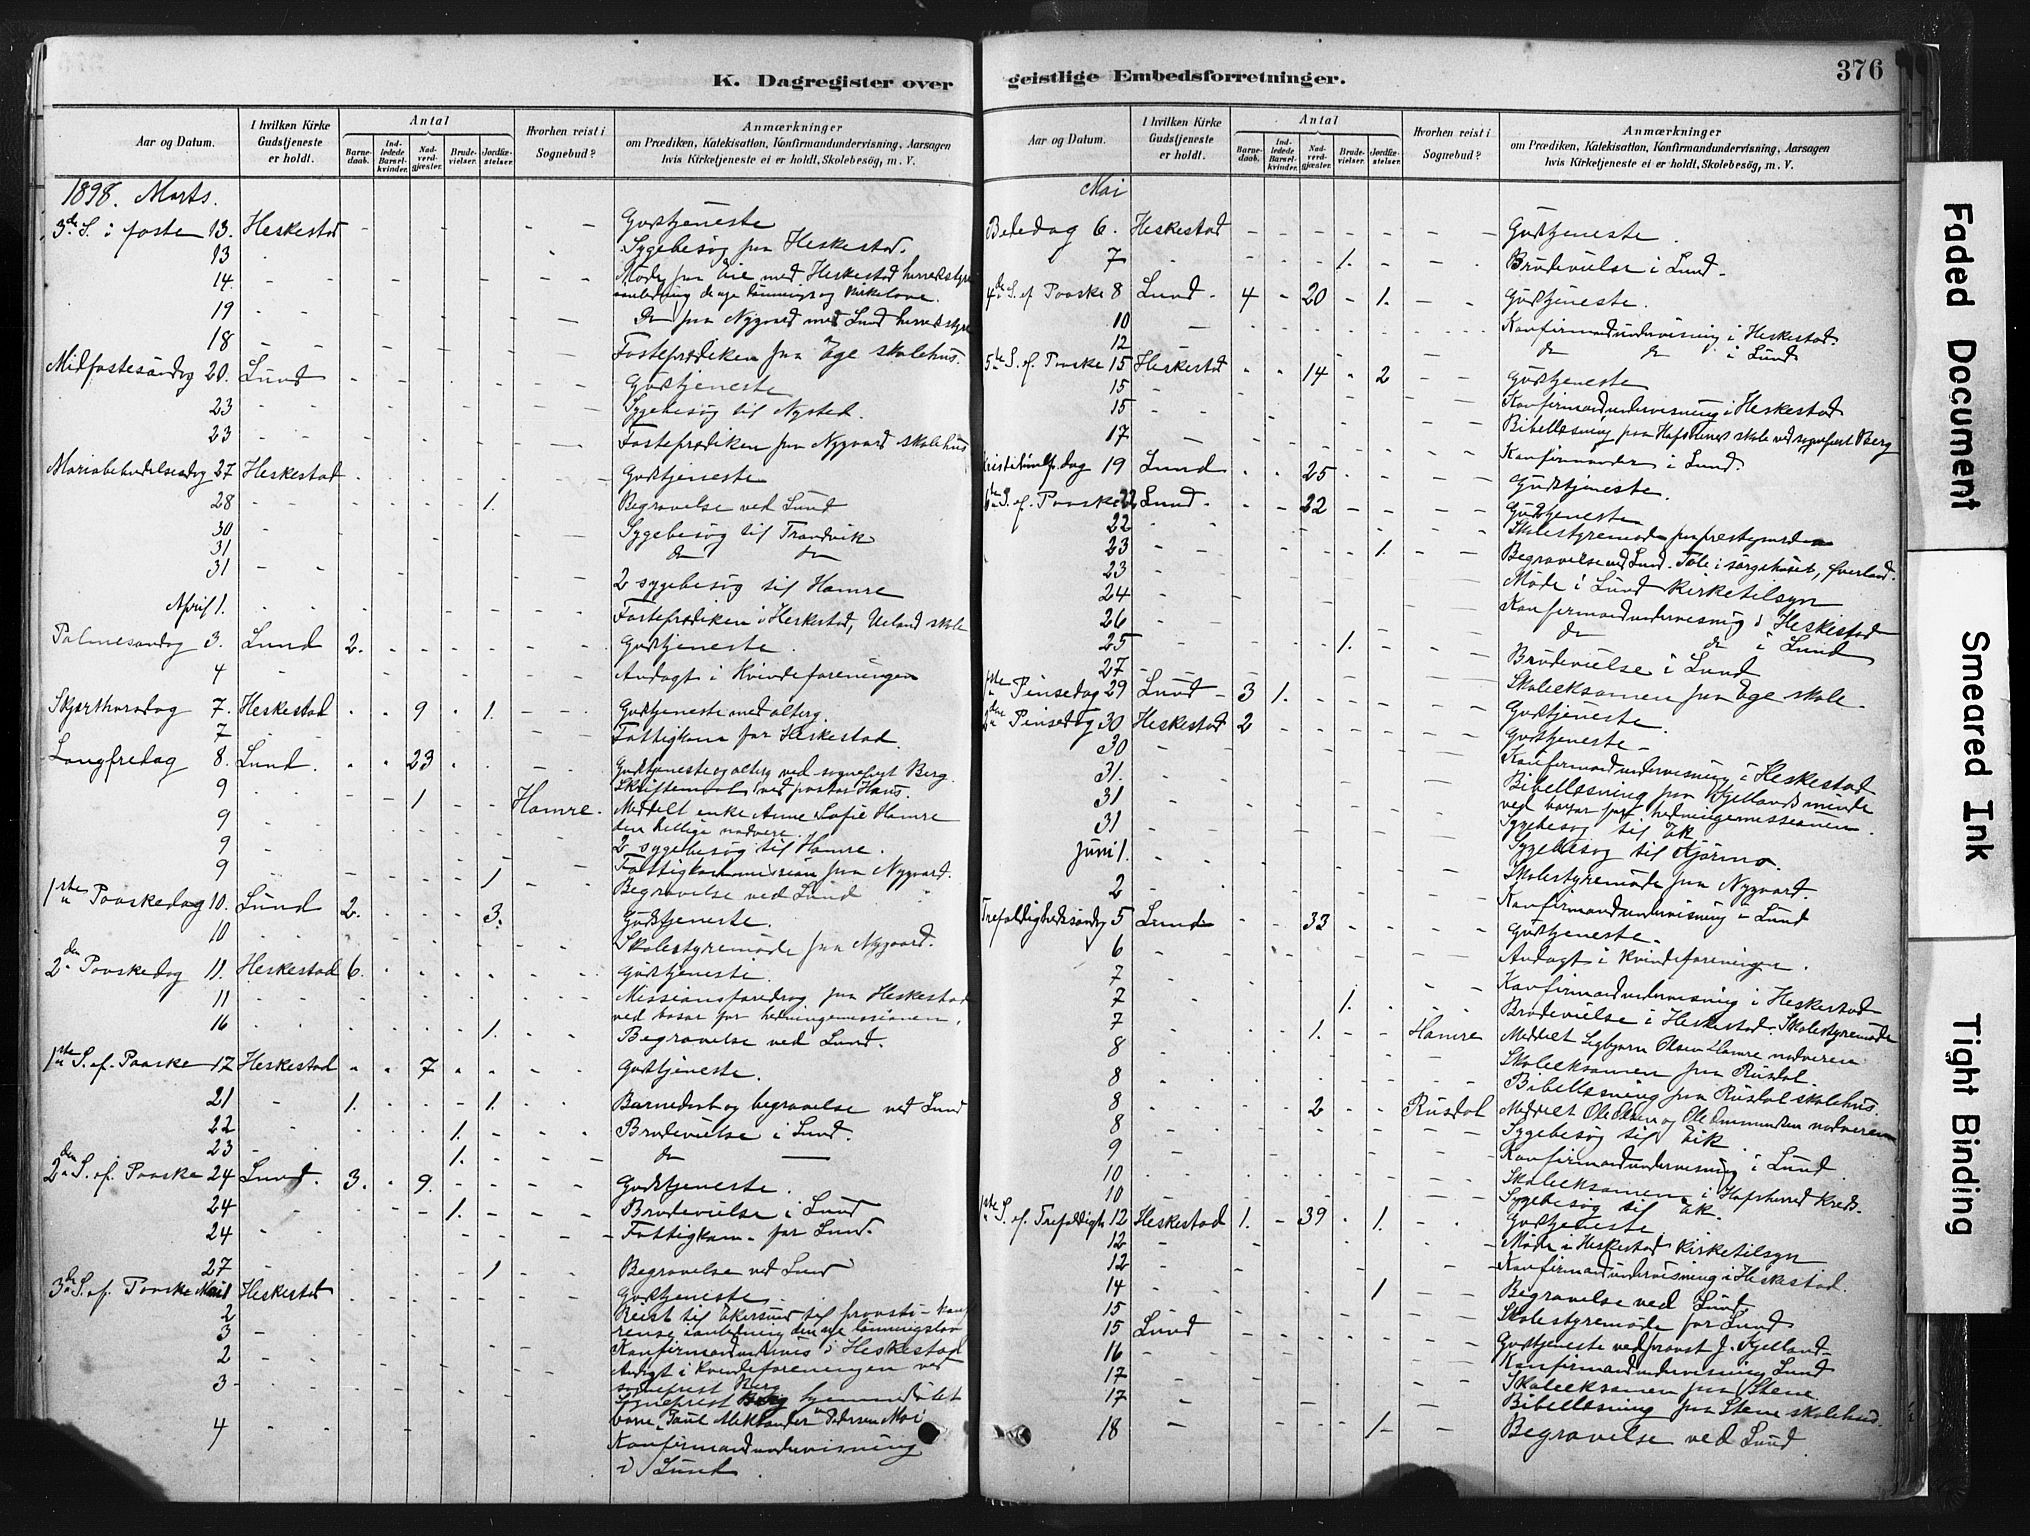 K. Dagregister over
Aar og Datum.
I hvilken Kirke Gudstjeneste er holdt.
Antal
Barnedaab.
Indledede Barselkvinder.
Nadverdgjæster.
Brudevielser.
Jordfæstelser.
Hvorhen reist i Sognebud?
Anmærkninger
om Prædiken, Katekisation, Konfirmandundervisning, Aarsagen
hvis Kirketjeneste ei er holdt, Skolebesøg, m. V.
1898. Marts.
3die S. i faste 13. Heskestad - - - - - - Gudstjeneste
13 Sygebesøg paa Heskestad.
14. Møde paa Eie med Heskestad herredsstyre
anledning de nye lønnings og kirkelove.
19 Do paa Nygaard med Lund herredsstyre
18 Fasteprædiken paa Ege skolehus.
Midfastesøndag 20. Lund Gudstjeneste
23 Sygebesøg til Nysted.
23 Fasteprædiken paa Nygaard skolehus
Mariabebudelsesdag 27 Heskestad Gudstjeneste
28 1. Begravelse ved Lund
30 Sygebesøg til Trandvik
31 do do
31 2 sygebesøg til Hamre
April 1. Fasteprædiken i Heskestad, Ueland skole
Palmesøndag 3. Lund 2. Gudstjeneste.
4 Andagt i Kvindeforeningen
Skjærthorsdag 7. Heskestad 9 1. Gudstjeneste med alterg.
7 Fattigkom for Heskestad.
Langfredag 8. Lund. 23 Gudstjeneste og alterg ved sognepregt Berg.
Skriftemaal ved pastor Hans.
9 1 Hamre. Meddelt enke Anne Sofie Hamre
den hellige nadvere.
9 2 sygebesøg til Hamre.
9 Fattigkommission paa Nygaard.
9 1 Begravelse ved Lund
1ste Paaskedag 10. Lund 2. 3. Gudstjeneste.
10 Skolestyremøde paa Nygaard.
2den Paaskedag 11. Heskestad 6. Gudstjeneste.
11 Missionsforedrag paa Heskestad
ved basar for hedningemissionen.
16 1. Begravelse ved Lund.
1ste S. ef. Paaske 17 Heskestad 7 Gudstjeneste.
21 1. 1. Barnedaab og begravelse ved Lund
22 1. Brudevielse i Lund.
23 1. do
2den S. ef. Paaske 24 Lund. 3. 9. Gudstjeneste.
24 1. Brudevielse i Lund
24 Fattigkom. for Lund.
27 1 Begravelse ved Lund
3die S. ef. Paaske Mai 1 Heskestad Gudstjeneste
2 Reist til Ekersund til provsti-konf
3 rense i anledning den nye lønningslov
2 Konfirmandundervis i Heskestad
3 Andagt i kvindeforeningen ved
sogneprest Berg
Sogneprest Berg hjemmedøbt
barn Paul Aleksander Pedersen Moi
4 Konfirmandundervisning
i Lund.
geistlige Embedsforretninger.
376
Aar og Datum.
I hvilken Kirke Gudstjeneste er holdt.
Antal
Barnedaab.
Indledede Barselkvinder.
Nadverdgjæster.
Brudevielser.
Jordfæstelser.
Hvorhen reist i Sognebud?
Anmærkninger
om Prædiken, Katekisation, Konfirmandundervisning, Aarsagen
hvis Kirketjeneste ei er holdt, Skolebesøg, m. V.
Mai
Bededag 6. Heskestad Gudstjeneste.
7 1. Brudevielse i Lund.
4de S. ef. Paaske 8 Lund. 4 20 1. Gudstjeneste.
10 Konfirmandundervisning i Heskestad
12 do do i Lund
5te S. ef. Paaske 15 Heskestad 14 2 Gudstjeneste
15 Konfirmandundervisning i Heskestad
15 Bibellæsning paa Hafsteens skole ved sogneprest Berg
17 Konfirmander i Lund.
Kristihimlf.dag 19 Lund 25 Gudstjeneste.
6te S. ef. Paaske 22 Lund. 22 Gudstjeneste
22 Skolestyremøde paa prestegaarden
23 1. Begravelse ved Lund. Tale i sørgehuset, Øverland.
23 Møde i Lund kirketilsyn
24 Konfirmandundervisning i Heskestad
26 do do i Lund
25 1. Brudevielse i Lund
27 Skoleeksamen paa Ege skole.
1ste Pinsedag 29 Lund 3 1. Gudstjeneste.
2den Pinsedag 30 Heskestad 2 Gudstjeneste
30 Konfirmandundervisning i Heskestad
31. Bibellæsning paa Kjellands minde
ved basar for hedningemissionen.
31 Sygebesøg til Eik
31 Sygebesøg til Kjørmo.
Juni 1. Skolestyremøde paa Nygaard.
2 Konfirmandundervisning i Lund
Trefoldighedssøndag 5 Lund 33 Gudstjeneste.
6 Andagt i kvindeforeningen.
7 Konfirmandundervisning i Heskestad
7 1. Brudevielse i Heskestad. Skolestyremøde
7 1. Hamre Meddelt Olsen Hamre nadveren
8 Skoleeksamen paa Rusdal.
8 Bibellæsning paa Rusdal skolehus.
8 2 Rusdal Meddelt Ole Olsen og Ole Ommundsen nadveren
8 Sygebesøg til Eik
9 Konfirmandundervisning i Lund
10 Skoleeksamen i Hafsherred Kreds.
10 Sygebesøg til Eik.
1ste S. ef. Trefoldigh 12 Heskestad 1. 39 1. Gudstjeneste
12 Møde i Heskestad kirketilsyn
12 Konfirmandundervisning i Heskestad.
14 1 Begravelse ved Lund
15 Skolestyremøde for Lund
15 Lund Gudstjeneste ved provst J. Kjelland
16 Konfirmandundervisning Lund
17 Skoleeksamen paa Stene
17 Bibellæsning paa Stene skolehus.
18 1. Begravelse ved Lund.
Faded Document
Smeared Ink
Tight Binding